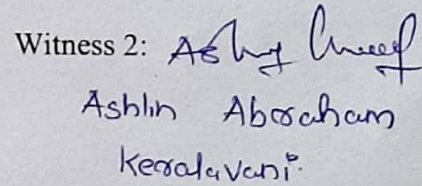 Witness 2:
Ashlin Abraham
Keralavani.